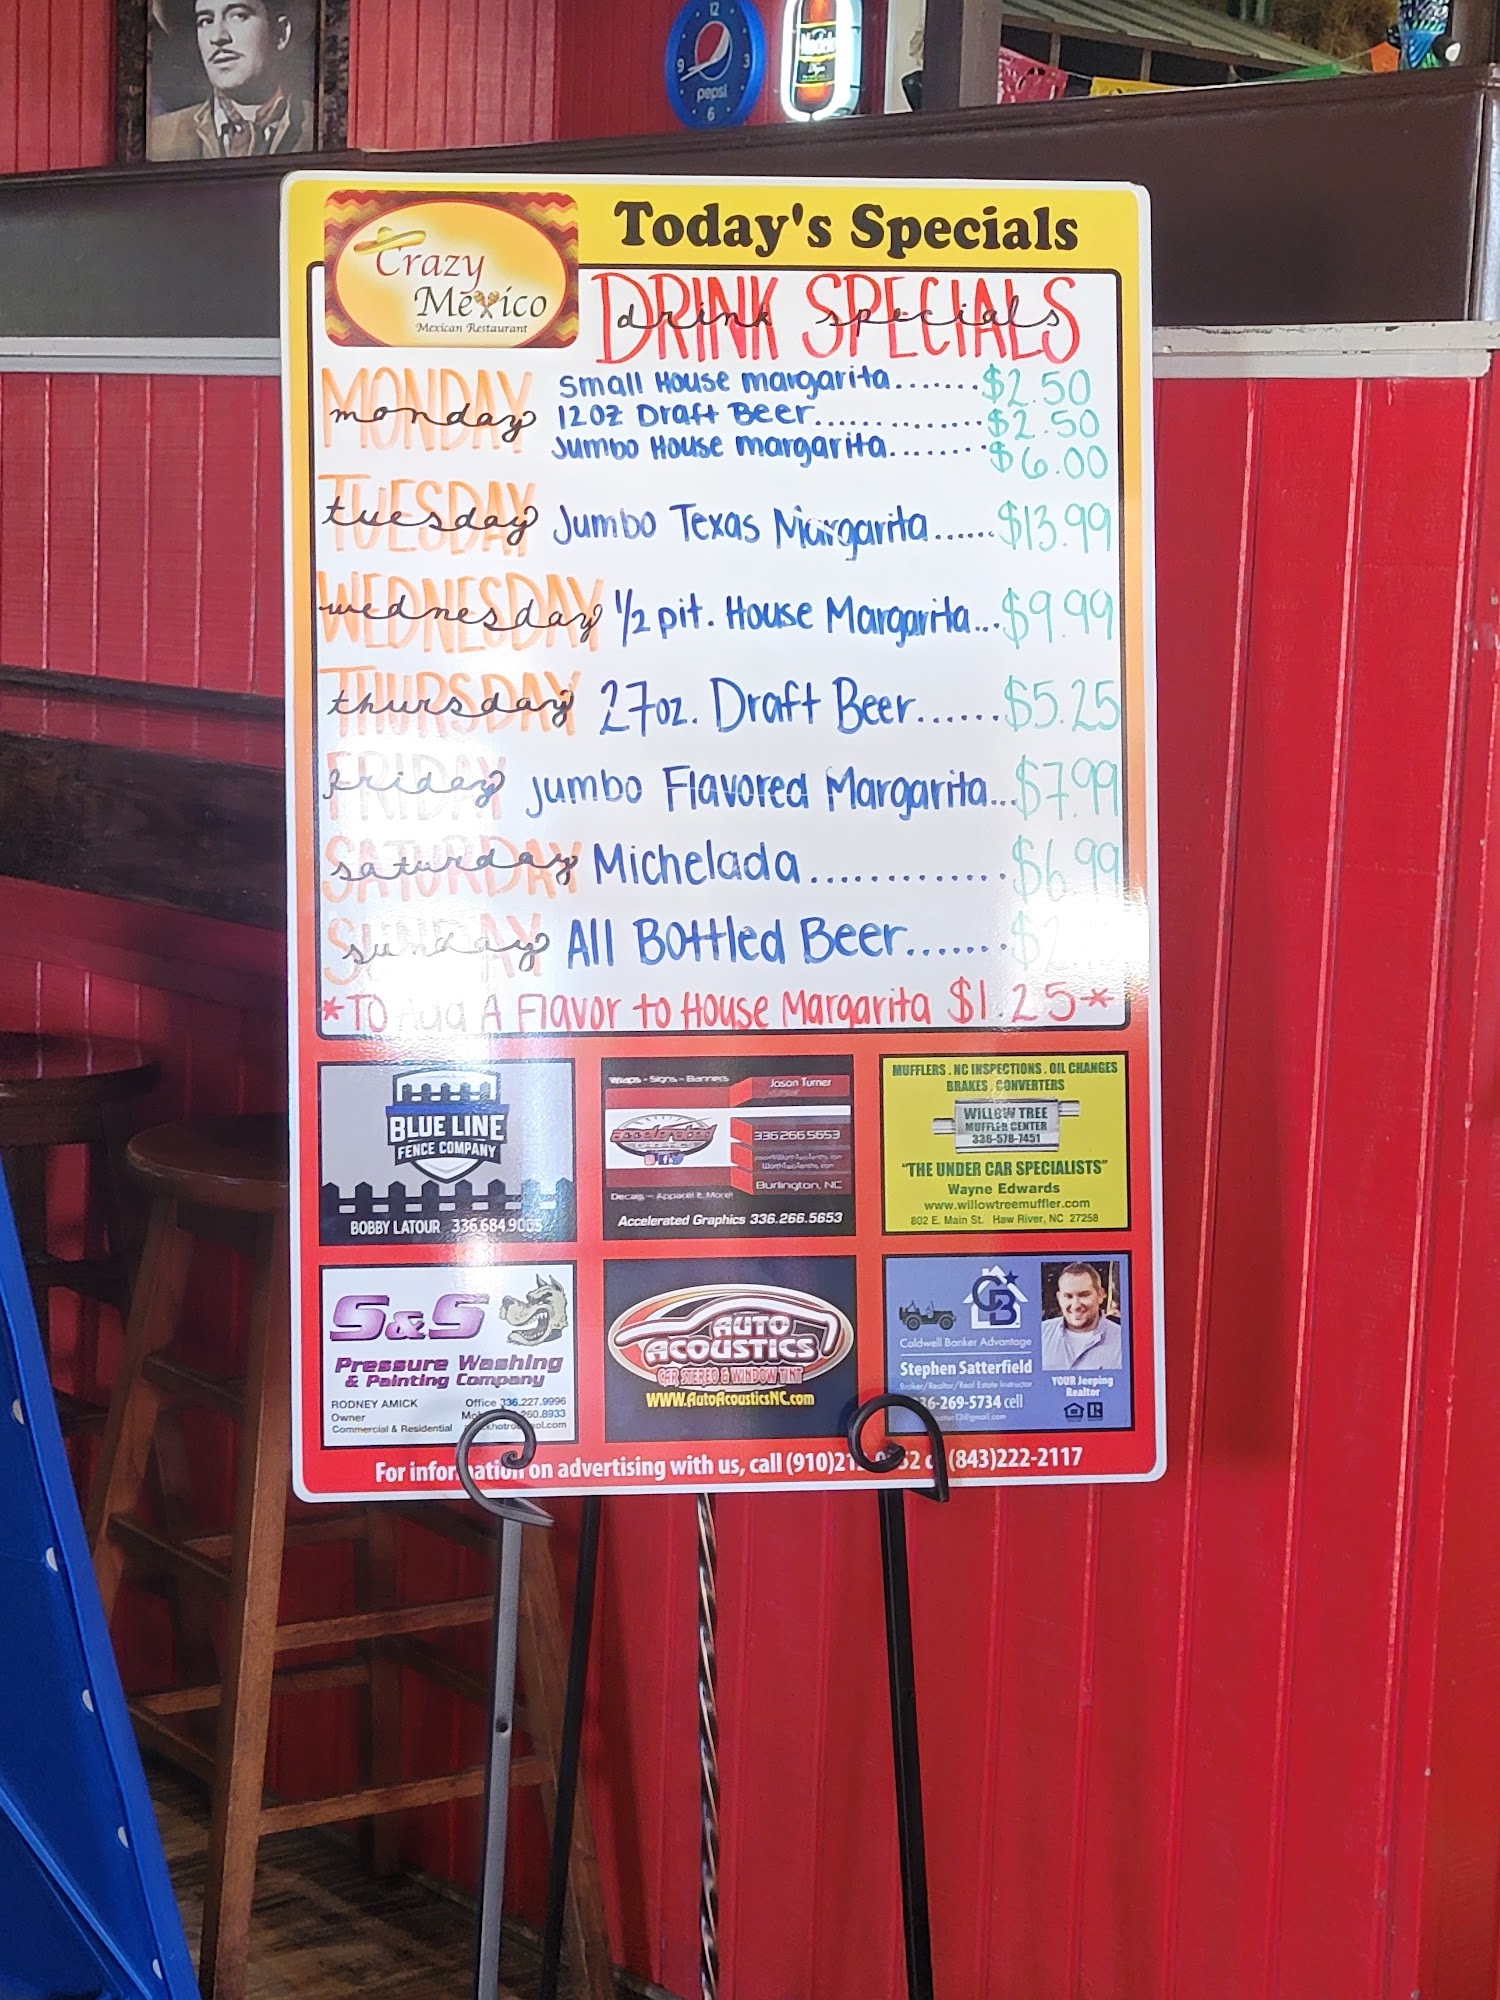 12
9
3
pepsi
6
Modelo
Today's Specials
Crazy
México
Mexican Restaurant
DRINK SPECIALS
drink specials
MONDAY
monday
Small House margarita.......$2.50
12oz Draft Beer..............$2.50
Jumbo House margarita........$6.00
TUESDAY
tuesday Jumbo Texas Margarita......$13.99
WEDNESDAY
wednesday 1/2 pit. House Margarita...$9.99
THURSDAY
thursday 27oz. Draft Beer......$5.25
FRIDAY
friday Jumbo Flavored Margarita...$7.99
SATURDAY
saturday Michelada.............$6.99
SUNDAY
sunday All Bottled Beer.......$2
*TO Add A Flavor to House Margarita $1.25*
BLUE LINE
FENCE COMPANY
BOBBY LATOUR
Wraps - Signs - Banners
Jason Turner
accelerated
336.266.5653
Burlington, NC
Decals - Apparel & More!
Accelerated Graphics 336.266.5653
MUFFLERS . NC INSPECTIONS . OIL CHANGES
BRAKES . CONVERTERS
WILLOW TREE
MUFFLER CENTER
336-578-7451
"THE UNDER CAR SPECIALISTS"
Wayne Edwards
www.willowtreemuffler.com
802 E. Main St. Haw River, NC 27258
S&S
Pressure Washing
& Painting Company
RODNEY AMICK
Office 336.227.9996
Owner
Commercial & Residential
AUTO
ACOUSTICS
CAR STEREO & WINDOW TINT
WWW.AutoAcousticsNC.com
CB
Coldwell Banker Advantage
Stephen Satterfield
Broker/Realtor/Real Estate Instructor
36-269-5734 cell
YOUR Jeeping
Realtor
For information on advertising with us, call (910)21 (843)222-2117